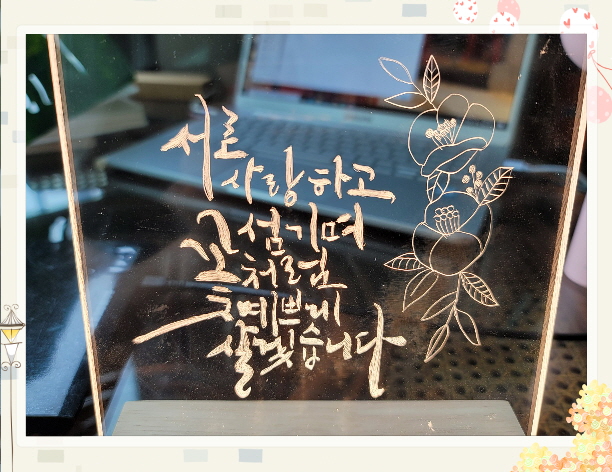 서로
사랑하고
섬기며
꽃처럼
예쁘게
살겠습니다